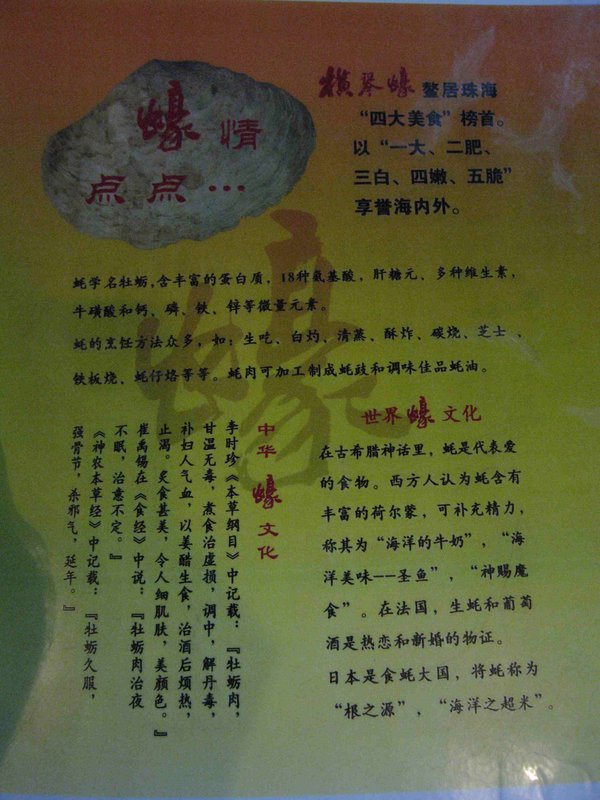 蠔情
点点…
横琴蠔 鳌居珠海
“四大美食”榜首。
以“一大、二肥、
三白、四嫩、五脆”
享誉海内外。
蚝学名牡蛎,含丰富的蛋白质，18种氨基酸，肝糖元、多种维生素，
牛磺酸和钙、磷、铁、锌等微量元素。
蚝的烹饪方法众多，如：生吃、白灼、清蒸、酥炸、碳烧、芝士、
铁板烧、蚝仔烙等等。蚝肉可加工制成蚝豉和调味佳品蚝油。
蠔
中华蠔文化
李时珍《本草纲目》中记载：『牡蛎肉，
甘温无毒，煮食治虚损，调中，解丹毒，
补妇人气血，以姜醋生食，治酒后烦热，
止渴。炙食甚美，令人细肌肤，美颜色。』
崔禹锡在《食经》中说：『牡蛎肉治夜
不眠，治意不定。』
《神农本草经》中记载：『牡蛎久服，
强骨节，杀邪气，延年。』
世界蠔文化
在古希腊神话里，蚝是代表爱
的食物。西方人认为蚝含有
丰富的荷尔蒙，可补充精力，
称其为“海洋的牛奶”，“海
洋美味——圣鱼”，“神赐魔
食”。在法国，生蚝和葡萄
酒是热恋和新婚的物证。
日本是食蚝大国，将蚝称为
“根之源”，“海洋之超米”。